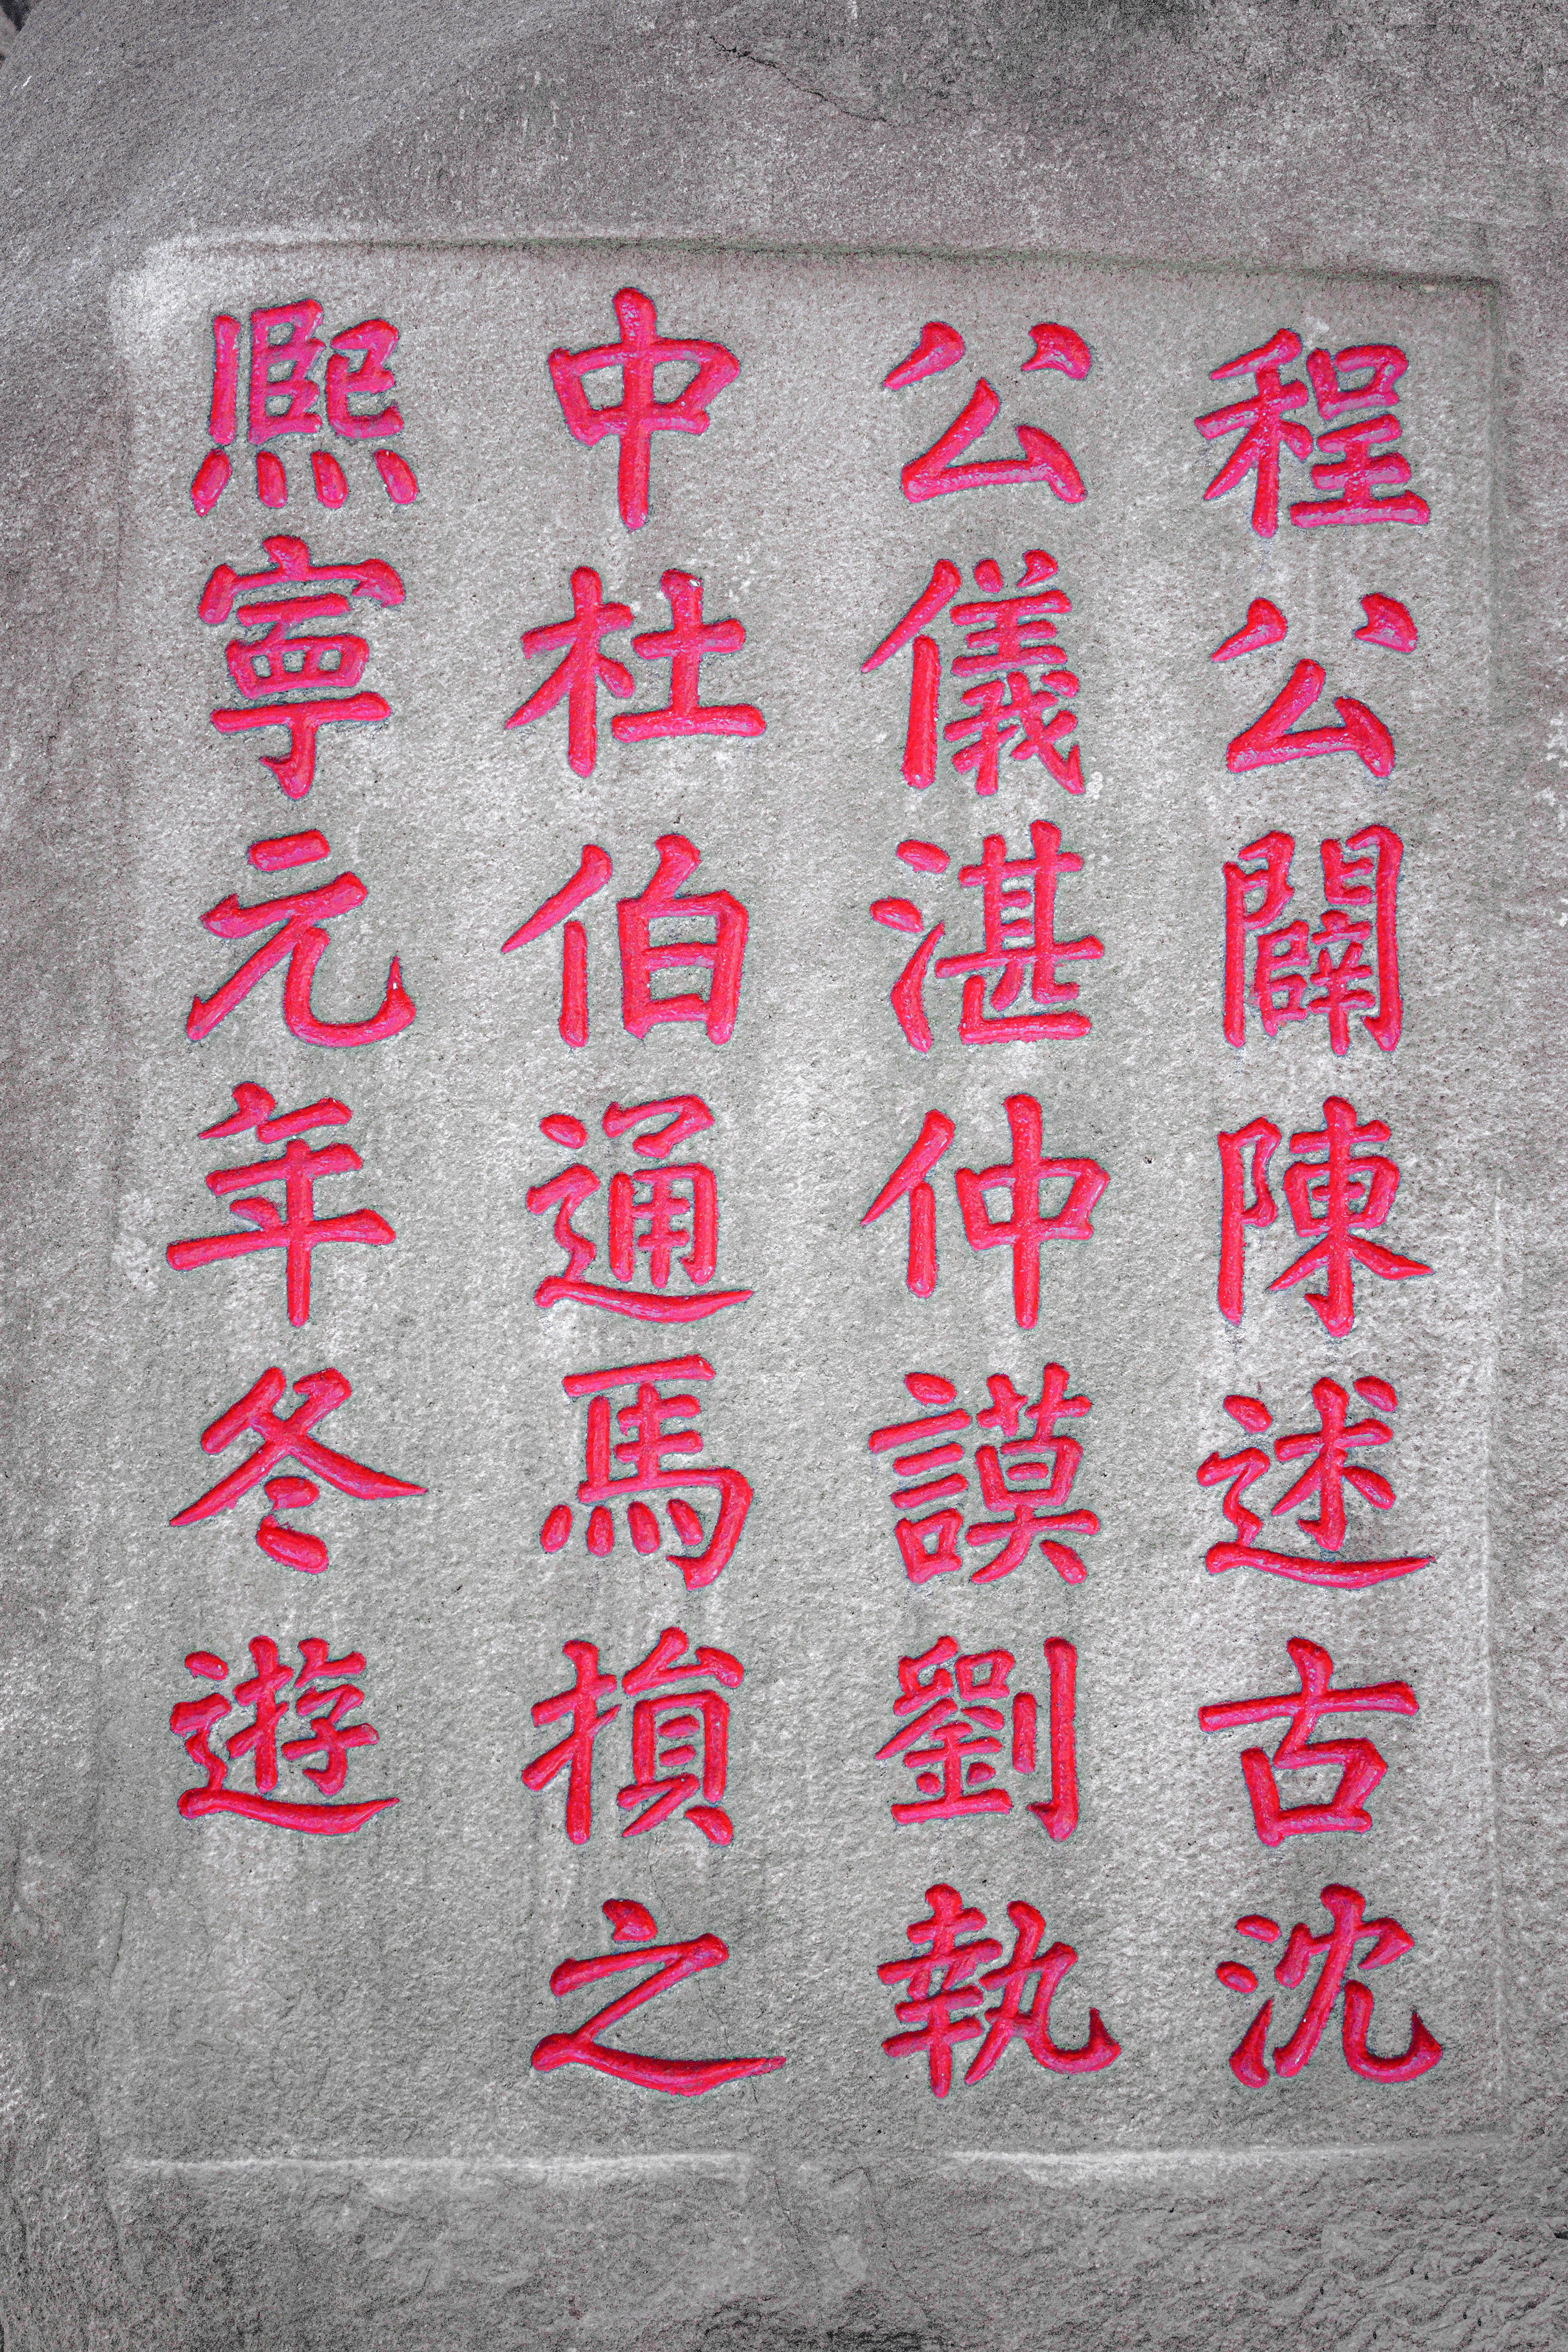 程公闢陳述古沈
公儀湛仲謨劉執
中杜伯通馬損之
熙寧元年冬遊